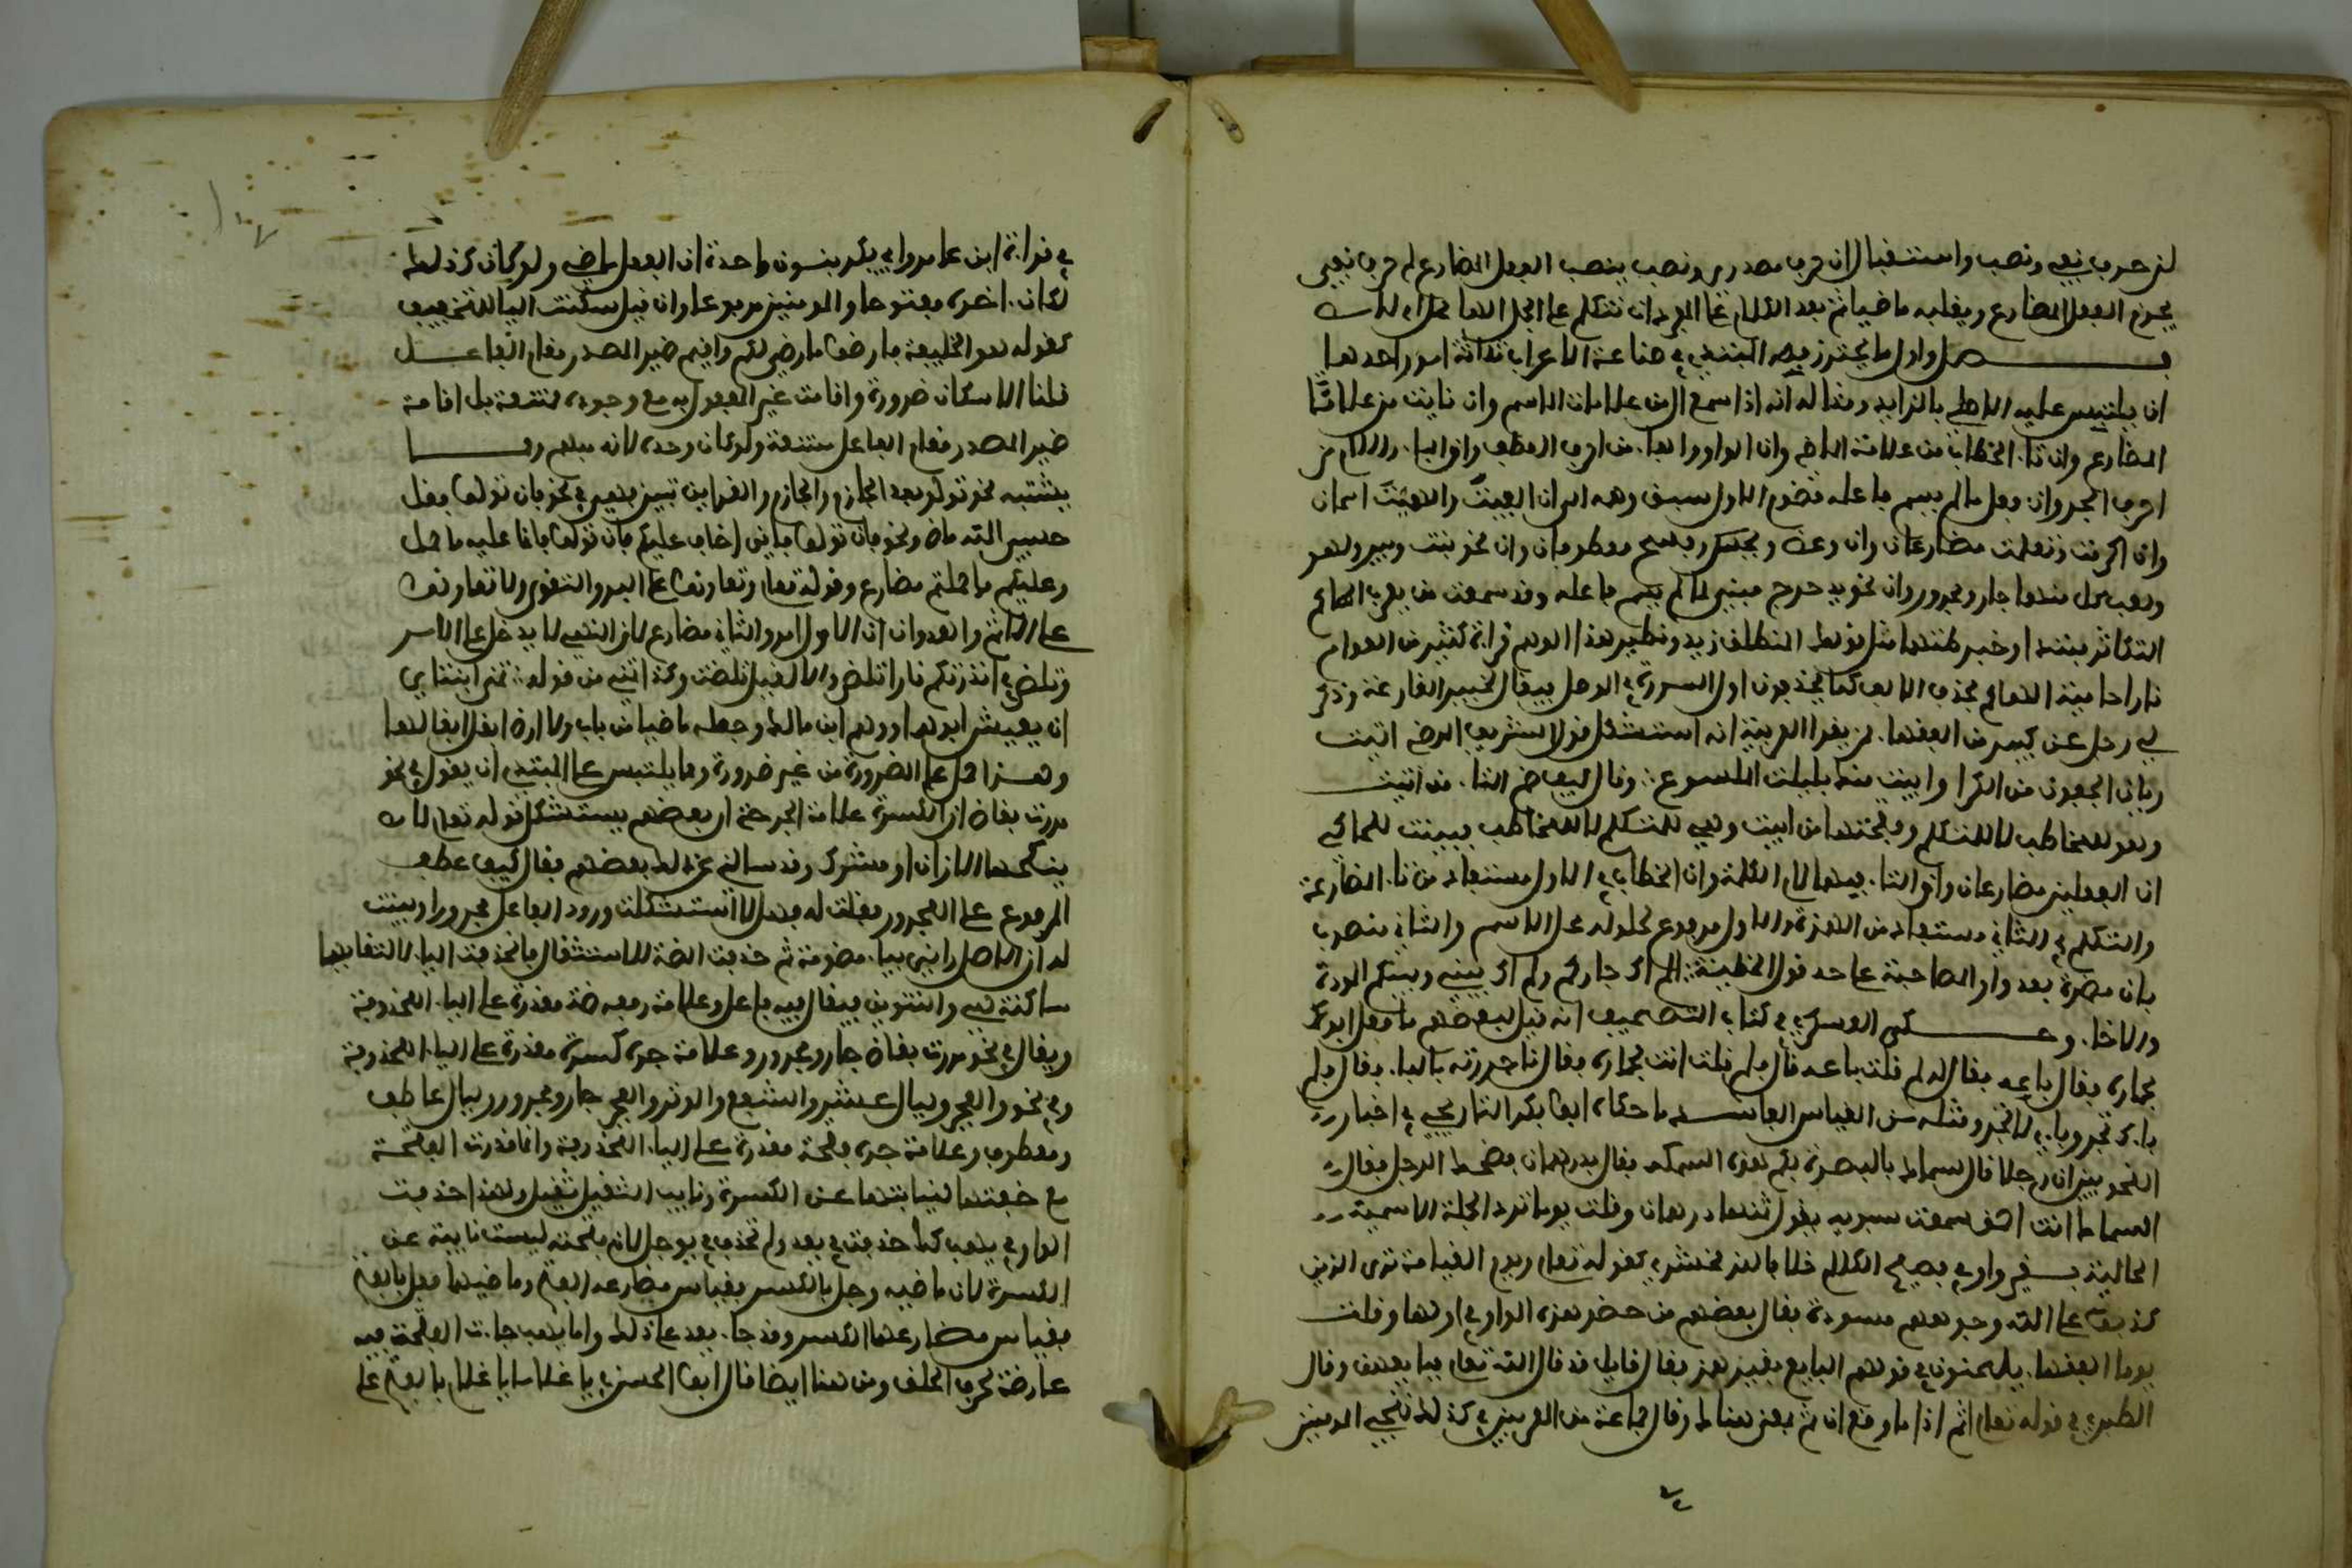 لن حرف نفي ونصب واستقبال ان حرف مصدري ونصب ينصب الفعل المضارع لم حرف نفي
يجزم الفعل المضارع ويقلبه ماضيا ثم بعد الكلام على المفردات نتكلم على الجمل الها محل ام لا
فـصل واول ما يحترز منه المبتدي في صناعة الاعراب ثلاثة امور احدها
ان يلتبس عليه الاصلي بالزايد ومثاله انه اذا سمع ان من علامات الاسم وان نايت من علامات
المضارع وان تاء الخطاب من علامة الماضي وان الواو والفاء من احرف العطف وان الباء واللام من
احرف الجر وان فعل ما لم يسم فاعله مضموم الاول سبق وهمه الى ان الفيت والهيت اسمان
وان اكرمت وتعلمت مضارعان وان وعظ و فسخ معطوفان وان نحو بيت وبين ولهو
ولعب كل منهما جار ومجرور وان نحو يدحرج مبني لما لم يسم فاعله وقد سمعت من يعرب الهاكم
التكاثر مبتدا وخبرا فظنهما مثل قولك المنطلق زيد ونظير هذا الوهم قراءة كثير من العوام
نارا حامية الهاكم بحذف الالف كما تحذف اول السورة في الوصل فيقال لخبير القارعة وذكر
لي رجل عن كبير من الفقهاء ممن يقرا العربية انه استشكل قول الشريف الرضي اتبيت
ريان الجفون من الكرا وابيت منك بليلة الملسوع وقال كيف ضم التاء من اتبيت
وهو للمخاطب لا للمتكلم وفتحها من ابيت وهي للمتكلم لا للمخاطب فبينت للحاكي
ان الفعلين مضارعان وان التاء فيهما لام الكلمة وان الخطاب في الاول مستفاد من تاء المضارعة
والتكلم في الثاني مستفاد من الهمزة والاول مرفوع لحلوله محل الاسم والثاني منصوب
بان مضمرة بعد واو المصاحبة على حد قول الحطيئة الم اك جاركم ولم اك بيني وبينكم المودة
والاخاء وحكى العسكري في كتاب التصحيف انه قيل لبعضهم ما فعل ابوك
بحماره فقال باعه فقال له لم قلت باعه قال فلم قلت انت بحماره فقال انا جررته بالباء فقال فلم
باءك تجر وباءي لا تجر ومثله من القياس الفاسد ما حكاه ابو بكر التاريخي في اخبار
النحويين ان رجلا قال لسماك بالبصرة بكم هذه السمكة فقال بدرهمان فضحك الرجل فقال
السماك انت احمق سمعت سيبويه يقول ثمنها درهمان وقلت يوما ترد الجملة الاسمية
الحالية بغير واو في فصيح الكلام خلافا للزمخشري كقوله تعالى ويوم القيامة ترى الذين
كذبوا على الله وجوههم مسودة فقال بعضهم من حضر هذه الواو في اولها وقلت
يوما الفقهاء يلحنون في قولهم البايع بغير همز فقال قايل قد قال الله تعالى فبايعهن وقال
الطبري في قوله تعالى اثم اذا ما وقع ان ثم بمعنى هنالك وقال جماعة من المعربين في كذلك نجي المومنين
في قراءة ابن عامر وابي بكر بنون واحدة ان الفعل ماض ولو كان كذلك
لكان اخره مفتوحا والمومنين مرفوعا وان قيل سكنت الياء للتخفيف
كقوله هو الخليفة فارضوا ما رضي لكم واقيم ضمير المصدر مقام الفاعل
قلنا الاسكان ضرورة واقامت غير المفعول به مع وجوده ممتنعة بل اقامة
ضمير المصدر مقام الفاعل ممتنعة ولو كان وحده لانه مبهم ومما
يشتبه نحو تولوا بعد الجازم والجازم والقراين تبين فهو في نحو فان تولوا فقل
حسبي الله ماض وفي نحو فان تولوا فاني اخاف عليكم فان تولوا فانما عليه ما حمل
وعليكم ما حملتم مضارع وقوله تعالى وتعاونوا على البر والتقوى ولا تعاونوا
على الاثم والعدوان ان الاول امر والثاني مضارع لان النهي لا يدخل على الامر
وتلظى في انذرتكم نارا تلظى والا لقيل تلظت وكذا تمنى من قوله تمنى ابنتاي
ان يعيش ابوهما ووهم ابن مالك وجعله ماضيا من باب ولا ارض ابقل ابقالها
وهذا حمل على الضرورة من غير ضرورة ومما يلتبس على المبتدي ان يقول في نحو
مررت بقاض ان الكسرة علامة الجر حتى ان بعضهم يستشكل قوله تعالى لا
ينكحها الا زان او مشرك وقد سالني عن ذلك بعضهم فقال كيف عطف
المرفوع على المجرور فقلت له فهلا استشكلت ورود الفاعل مجرورا وبينت
له ان الاصل زاني بياء مضمومة ثم حذفت الضمة للاستثقال ثم حذفت الياء لالتقايها
ساكنة هي والتنوين فيقال فيه فاعل وعلامة رفعه ضمة مقدرة على الياء المحذوفة
ويقال في نحو مررت بقاض جار ومجرور وعلامة جره كسرة مقدرة على الياء المحذوفة
وفي نحو والفجر وليال عشر والشفع والوتر والفجر جار ومجرور وليال عاطف
ومعطوف وعلامة جره فتحة مقدرة على الياء المحذوفة وانما قدرت الفتحة
مع خفتها لنيابتها عن الكسرة ونايب الثقيل ثقيل ولهذا حذفت
الواو في يهب كما حذفت في يعد ولم تحذف في يوجل لان فتحته ليست نايبة عن
الكسرة لان ماضيه وجل بالكسر فقياس مضارعه الفتح وماضيهما فعل بالفتح
فقياس مضارعهما الكسر وقد جاء يعد على ذلك واما يهب جاءت الفتحة فيه
عارضة لحرف الحلق ومن هنا ايضا قال ابو الحسن في يا غلاما يا غلام بالفتح على